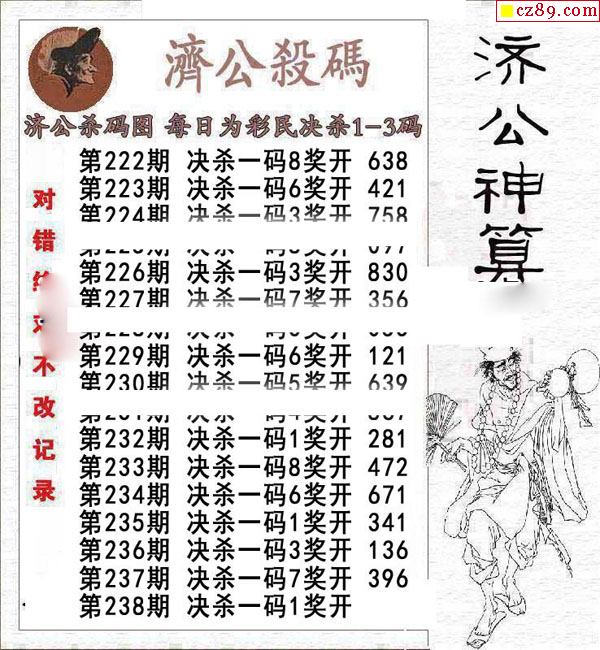 cz89.com
濟公殺碼
济公杀码图 每日为彩民决杀1-3码
第222期 决杀一码8奖开 638
第223期 决杀一码6奖开 421
第224期 决杀一码3奖开 758
第226期 决杀一码3奖开 830
第227期 决杀一码7奖开 356
第229期 决杀一码6奖开 121
第230期 决杀一码5奖开 639
第232期 决杀一码1奖开 281
第233期 决杀一码8奖开 472
第234期 决杀一码6奖开 671
第235期 决杀一码1奖开 341
第236期 决杀一码3奖开 136
第237期 决杀一码7奖开 396
第238期 决杀一码1奖开
对错 不改记录
济公神算